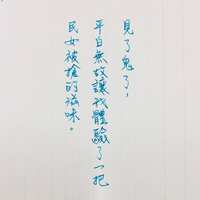 見了鬼了，
平白無故讓我體驗了一把
民女被搶的滋味。